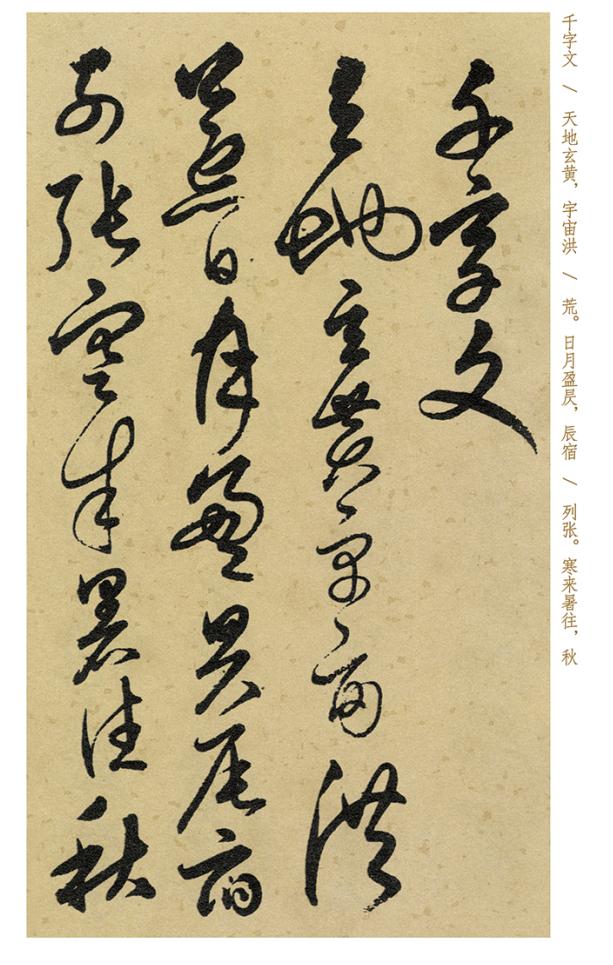 千字文 / 天地玄黄，宇宙洪 / 荒。日月盈昃，辰宿 / 列张。寒来暑往，秋
千字文
天地玄黃宇宙洪
荒日月盈昃辰宿
列張寒來暑往秋